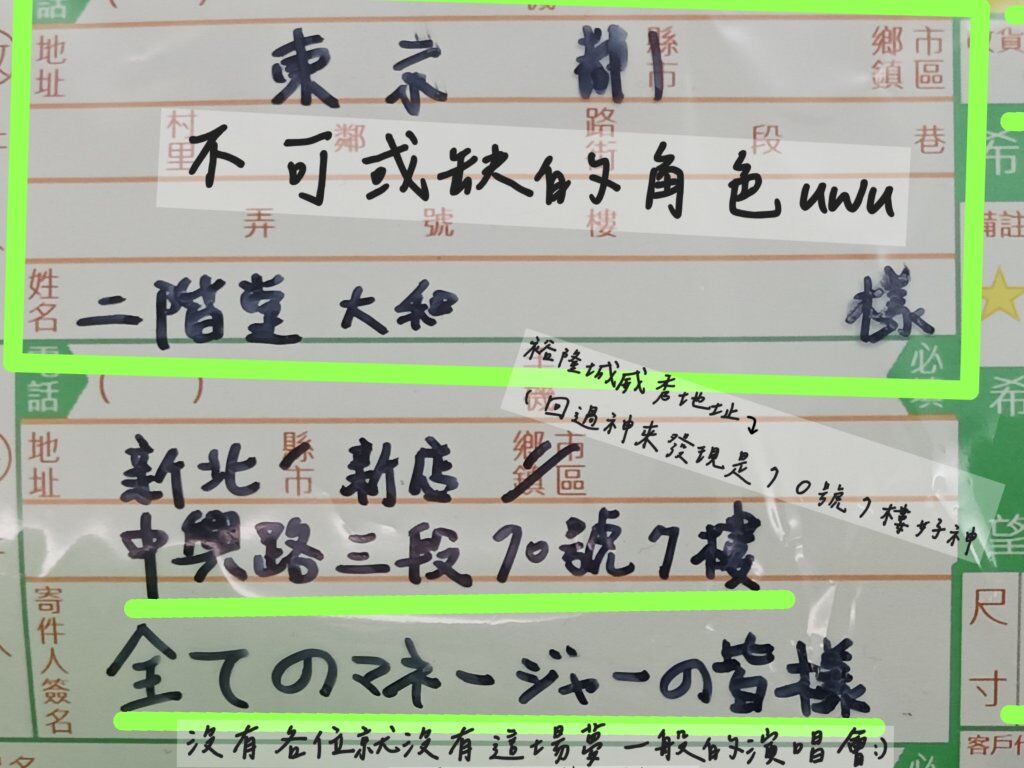 話
地址 東京都 縣市 鄉鎮市區
村里 鄰 路街 段 巷
不可或缺的角色uwu
弄 號 樓
姓名 二階堂 大和 樣
必填
電話 ( )
裕隆城威秀地址
(回過神來發現是70號7樓好神
地址 新北 縣市 新店 鄉鎮市區
中興路三段70號7樓
寄件人簽名 全てのマネージャーの皆様
沒有各位就沒有這場夢一般的演唱會:)
希
備註
希望
尺寸
客戶代